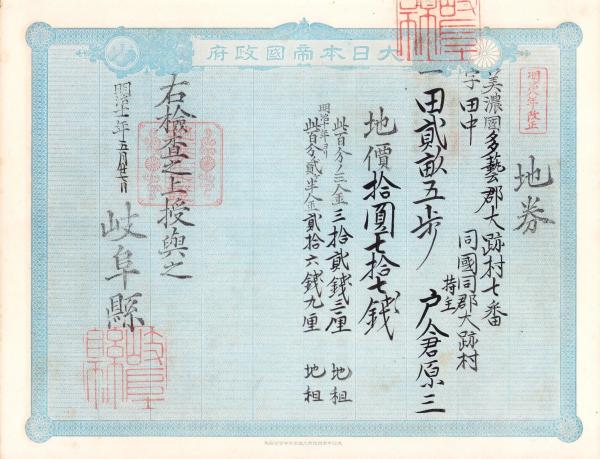 大日本帝國政府
明治八年改正
地券
美濃國多藝郡大跡村七番
字田中
同國同郡大跡村
持主 戸倉原三
一田貳畝五歩
地價拾圓七拾七錢
此百分ノ三金三拾貳錢三厘 地租
明治十年ヨリ
此百分ノ貳半金貳拾六錢九厘 地租
右檢査之上授與之
岐阜縣
岐阜縣